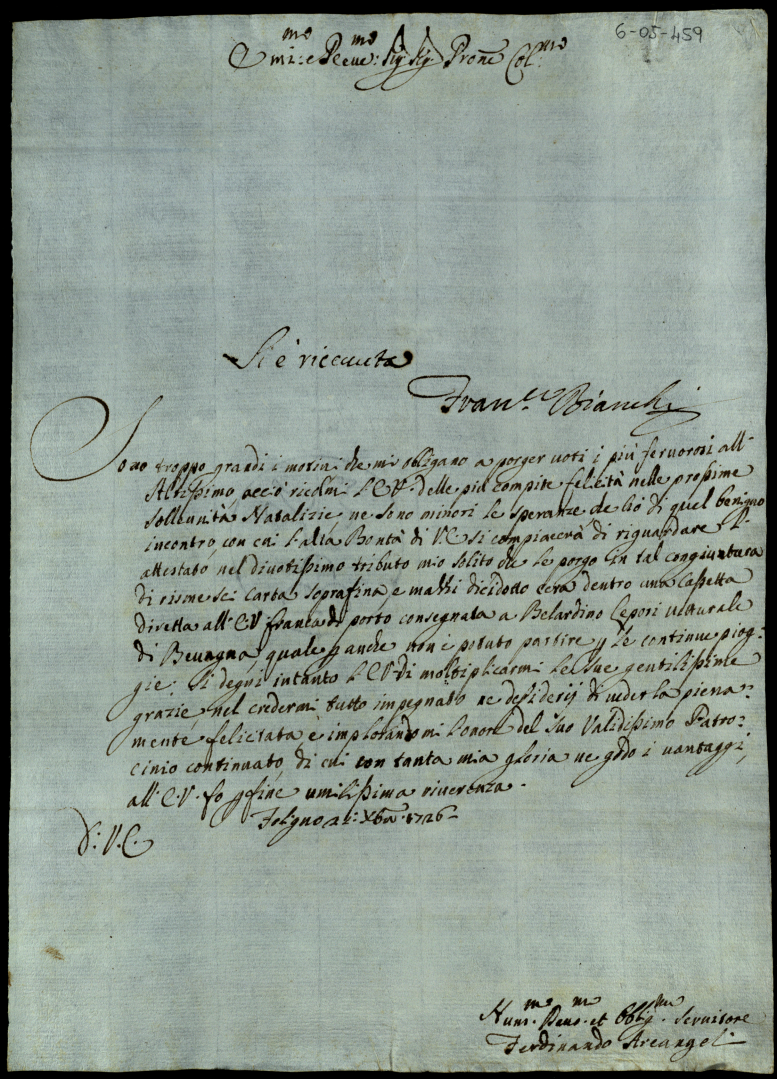 6-05-459
Emi:mo e Reve:mo Sig: Sig: Prone Col:mo
Si è riceuuta
Fran.co Bianchi
Sono troppo grandi i motiui che mi obligano a porger uoti i più feruorosi all'
Altissimo, acciò ricolmi l'E.V. delle più compite felicità nelle prossime
sollennità Natalizie, ne sono minori le speranze che hò di quel benigno
incontro, con cui l'alta Bontà di V.E. si compiacerà di riguardare l'
attestato, nel diuotissimo tributo mio solito che le porgo in tal congiuntura
di risme sei carta soprafina, e mazzi dicidotto cera dentro una Cassetta
diretta all'E.V. franca di porto consegnata a Belardino Lepori uetturale
di Beuagna, quale p anche non è potuto partire p le continue piog-
gie; Si degni intanto l'E.V. di moltiplicarmi le sue gentilissime
grazie, nel credermi tutto impegnato ne desiderij di ueder la piena-
mente felicitata, e implorandomi l'onore del suo Validissimo Patro-
cinio continuato, di cui con tanta mia gloria ne godo i uantaggi,
all'E.V. fo p fine umilissima riuerenza.
Foligno 21: Xbre 1726
D: V.E.
Hum.mo Deuo.mo et Obblig.mo Seruitore
Ferdinando Arcangeli